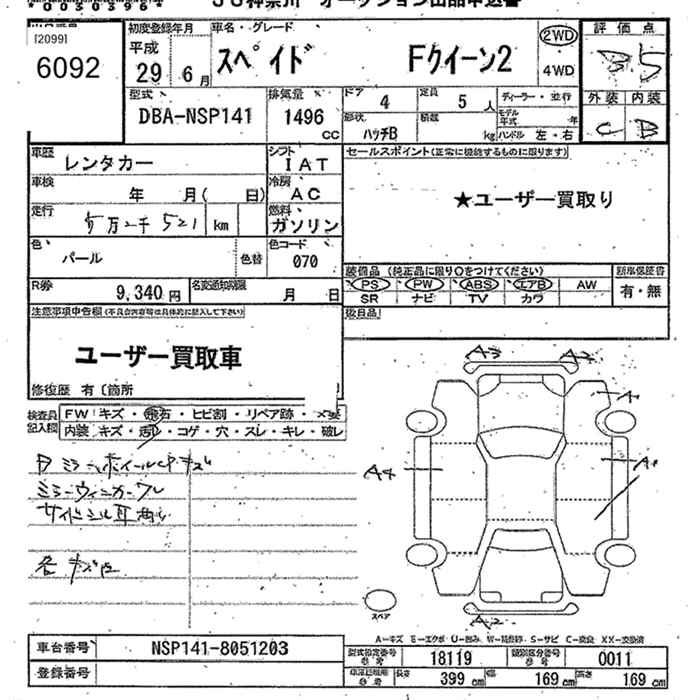 00505964
JU神奈川 オークション出品申込書
[2099]
6092
初度登録年月
平成
29 年 6 月
車名・グレード
スペイド Fクイーン2
2WD
4WD
評価点
3.5
外装 内装
C B
型式
DBA-NSP141
排気量
1496 CC
ドア 4
定員 5 人
形状 ハッチB
積載 kg
ディーラー・並行
モデル年式 年
ハンドル 左・右
車歴 レンタカー
シフト IAT
車検 年 月( 日)
冷房 AC
走行 521 km
燃料 ガソリン
色 パール
色替
色コード 070
R券 9,340 円
名変通知期限 月 日
セールスポイント(正常に機能するものに限ります)
★ユーザー買取り
装備品 (純正品に限り○をつけてください)
PS PW ABS エアB AW
SR ナビ TV カワ
新車保証書
有・無
後日品
注意事項申告欄(不具合内容等は具体的に記入して下さい)
ユーザー買取車
修復歴 有〔箇所
検査員記入欄
FW キズ・飛石・ヒビ割・リペア跡・×要
内装 キズ・汚れ・コゲ・穴・スレ・キレ・破レ
ミラーウィンカーワレ
サイドシル耳曲り
各キズ凹
A3
A2
A4
A1
A1
A2
スペア
A-キズ E-エクボ U-凹み W-補修跡 S-サビ C-腐食 XX-交換済
車台番号 NSP141-8051203
登録番号
型式指定番号 18119
類別区分番号 0011
長さ 399 cm
幅 169 cm
高さ 169 cm